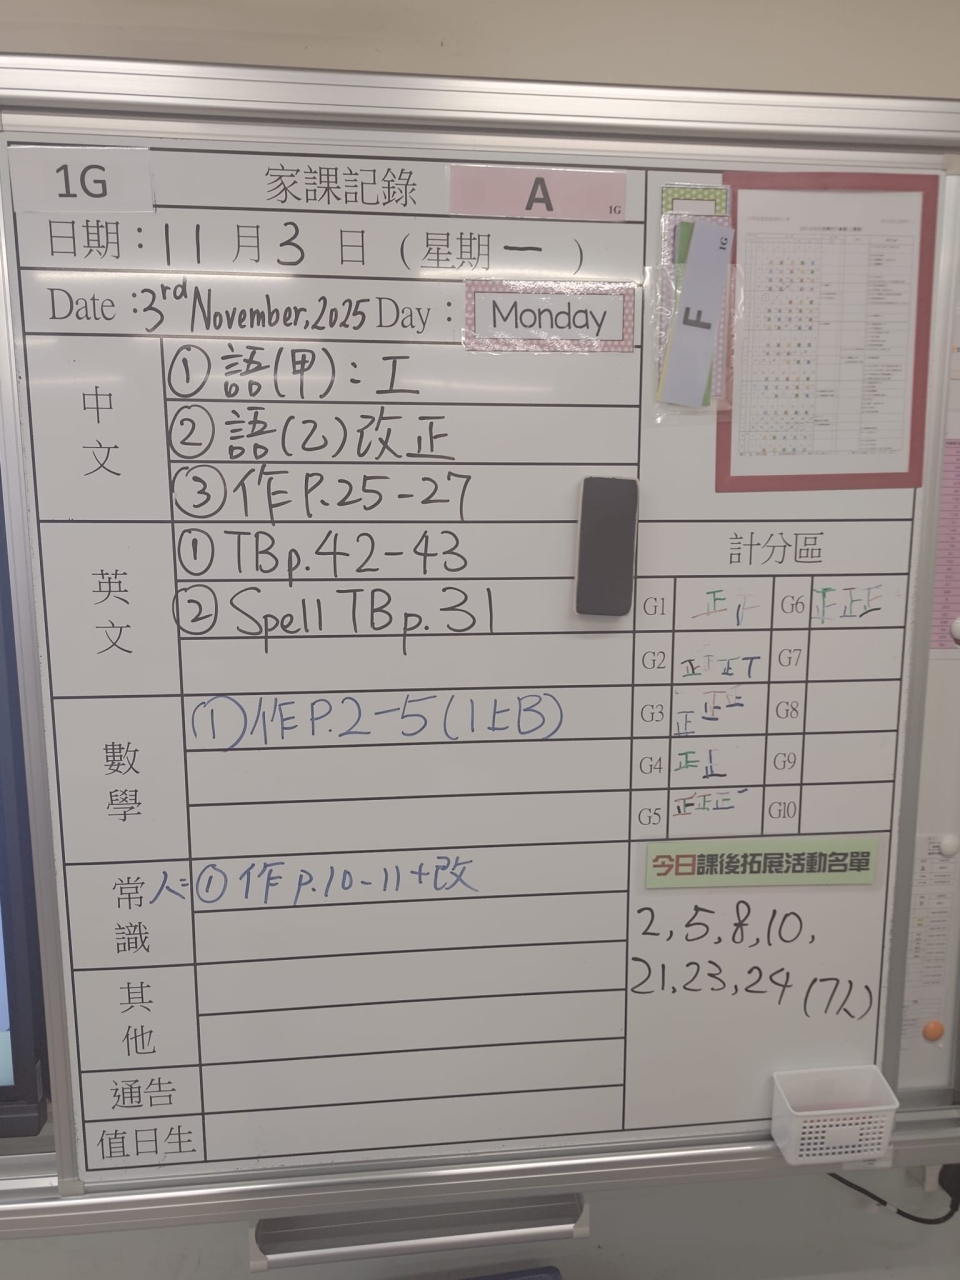 1G 家課記錄 A 1G
日期：11月3日（星期一）
Date：3rd November, 2025 Day：Monday
中文
①語(甲)：工
②語(乙)改正
③作P.25-27
英文
①TBp.42-43
②Spell TBp.31
數學
①作P.2-5(1上B)
常識
人=①作p.10-11+改
其他
通告
值日生
1G
F
計分區
G1 正 G6 正正正
G2 正正正丅 G7
G3 正正 G8
G4 正 G9
G5 正正正一 G10
今日課後拓展活動名單
2,5,8,10,
21,23,24(7人)